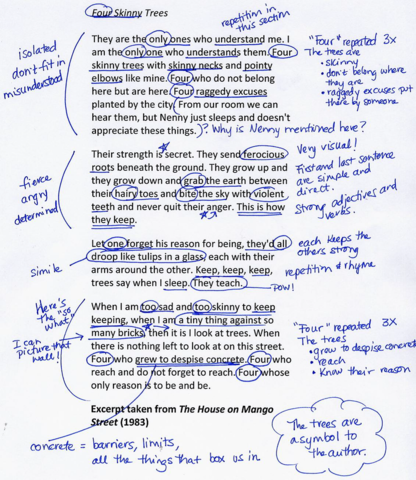 Four Skinny Trees
repetition in
this section
They are the only ones who understand me. I
am the only one who understands them. Four
skinny trees with skinny necks and pointy
elbows like mine. Four who do not belong
here but are here. Four raggedy excuses
planted by the city. From our room we can
hear them, but Nenny just sleeps and doesn't
appreciate these things.
)? Why is Nenny mentioned here?
isolated
don't-fit-in
misunderstood
"Four" repeated 3x
The trees are
• skinny
• don't belong where
they are
• raggedy excuses put
there by someone
Their strength is secret. They send ferocious
roots beneath the ground. They grow up and
they grow down and grab the earth between
their hairy toes and bite the sky with violent
teeth and never quit their anger. This is how
they keep.
fierce
angry
determined
Very visual!
First and last sentence
are simple and
direct.
Strong adjectives and
verbs.
Let one forget his reason for being, they'd all
droop like tulips in a glass, each with their
arms around the other. Keep, keep, keep,
trees say when I sleep. They teach.
simile
each keeps the
others strong
repetition & rhyme
POW!
When I am too sad and too skinny to keep
keeping, when I am a tiny thing against so
many bricks, then it is I look at trees. When
there is nothing left to look at on this street.
Four who grew to despise concrete. Four who
reach and do not forget to reach. Four whose
only reason is to be and be.
Here's
the "so
what"
I can
picture that
wall!
"Four" repeated 3X
The trees
• grow to despise concrete
• reach
• Know their reason
Excerpt taken from The House on Mango
Street (1983)
concrete = barriers, limits,
all the things that box us in
The trees are
a symbol to
the author.